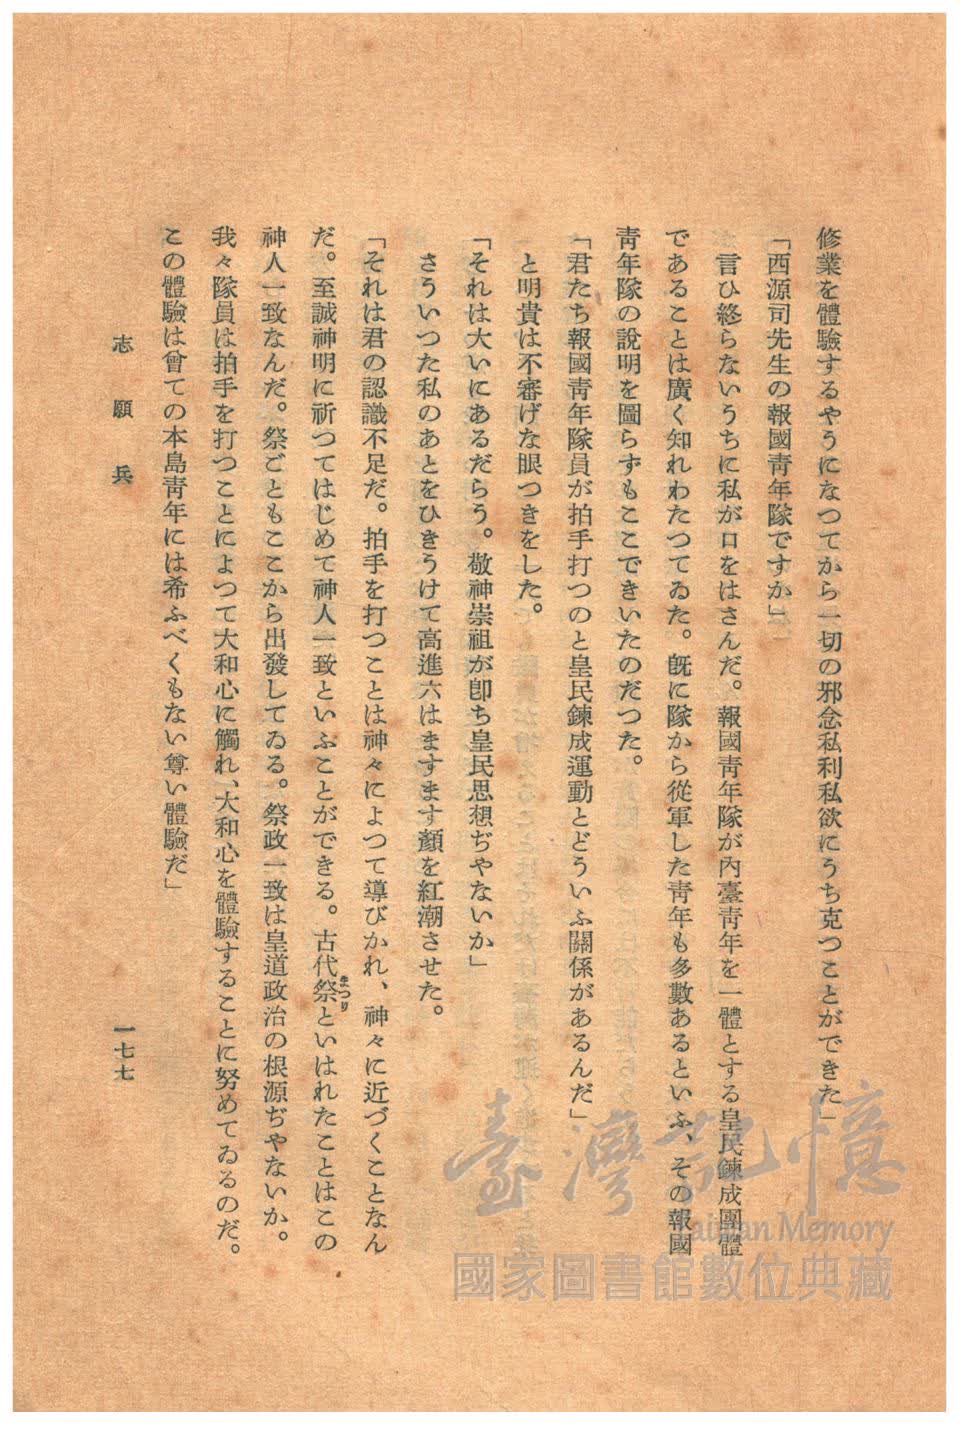 修業を體驗するやうになつてから一切の邪念私利私欲にうち克つことができた」
「西源司先生の報國靑年隊ですか」
言ひ終らないうちに私が口をはさんだ。報國靑年隊が內臺靑年を一體とする皇民鍊成團體
であることは廣く知れわたつてゐた。旣に隊から從軍した靑年も多數あるといふ、その報國
靑年隊の說明を圖らずもここできいたのだつた。
「君たち報國靑年隊員が拍手打つのと皇民鍊成運動とどういふ關係があるんだ」
と明貴は不審げな眼つきをした。
「それは大いにあるだらう。敬神崇祖が卽ち皇民思想ぢやないか」
さういつた私のあとをひきうけて高進六はますます顏を紅潮させた。
「それは君の認識不足だ。拍手を打つことは神々によつて導びかれ、神々に近づくことなん
だ。至誠神明に祈つてはじめて神人一致といふことができる。古代祭といはれたことはこの
まつり
神人一致なんだ。祭ごともここから出發してゐる。祭政一致は皇道政治の根源ぢやないか。
我々隊員は拍手を打つことによつて大和心に觸れ、大和心を體驗することに努めてゐるのだ。
この體驗は曾ての本島靑年には希ふべくもない尊い體驗だ」
志願兵
一七七
臺灣記憶
Taiwan Memory
國家圖書館數位典藏